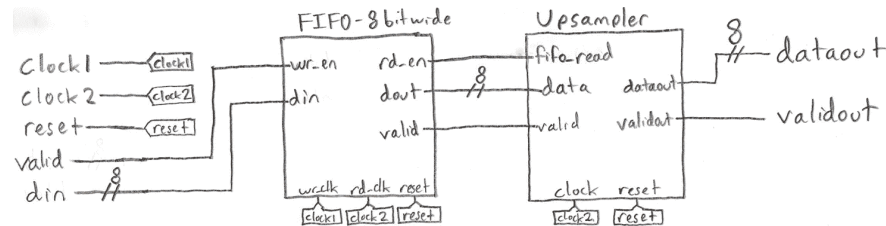 FIFO-8bitwide
Upsampler
clock1
clock1
clock2
clock2
reset
reset
valid
din
8
wr_en
din
rd_en
dout
valid
wr_clk
rd_clk
reset
clock1
clock2
reset
8
fifo_read
data
valid
dataout
validout
clock
reset
clock2
reset
8
dataout
validout